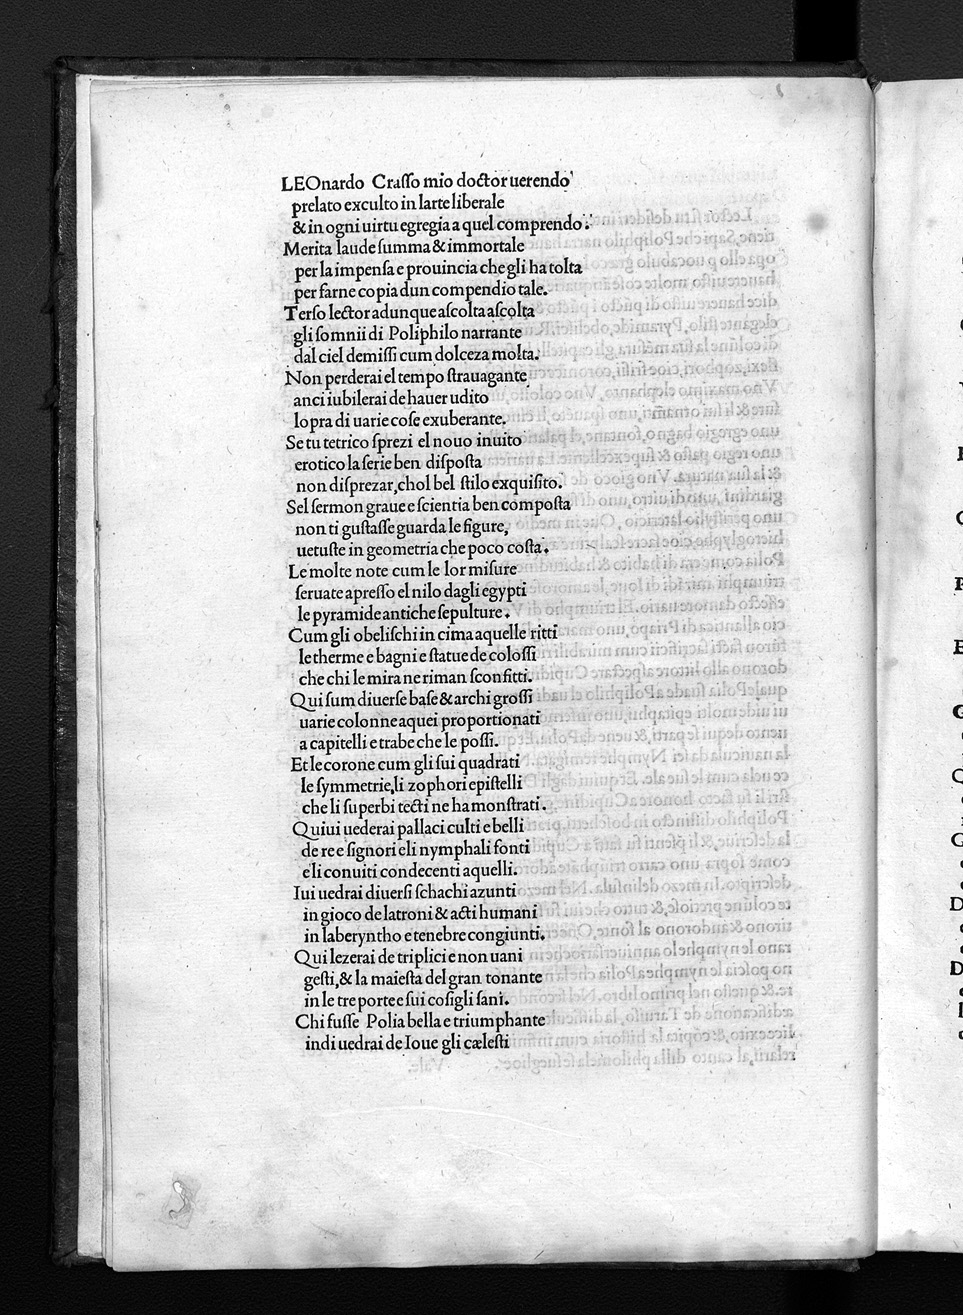 LEOnardo Craſſo mio doctor uerendo
prelato exculto in larte liberale
& in ogni uirtu egregia a quel comprendo.
Merita laude ſumma & immortale
per la impenſa e prouincia che gli ha tolta
per farne copia dun compendio tale.
Terſo lector adunque aſcolta aſcolta
gli ſomnii di Poliphilo narrante
dal ciel demiſſi cum dolceza molta.
Non perderai el tempo ſtrauagante
anci iubilerai de hauer udito
lopra di uarie coſe exuberante.
Se tu tetrico ſprezi el nouo inuito
erotico la ſerie ben diſpoſta
non diſprezar, chol bel ſtilo exquiſito.
Sel ſermon graue e ſcientia ben compoſta
non ti guſtaſſe guarda le figure,
uetuſte in geometria che poco coſta.
Le molte note cum le lor miſure
ſeruate apreſſo el nilo dagli egypti
le pyramide antiche ſepulture.
Cum gli obeliſchi in cima aquelle ritti
le therme e bagni e ſtatue de coloſſi
che chi le mira ne riman ſconfitti.
Qui ſum diuerſe baſe & archi groſſi
uarie colonne aquei proportionati
a capitelli e trabe che le poſſi.
Et le corone cum gli ſui quadrati
le ſymmetrie, li zophori epiſtelli
che li ſuperbi tecti ne ha monſtrati.
Quiui uederai pallaci culti e belli
de re e ſignori eli nymphali fonti
e li conuiti condecenti aquelli.
Iui uedrai diuerſi ſchachi azunti
in gioco de latroni & acti humani
in laberyntho e tenebre congiunti.
Qui lezerai de triplici e non uani
geſti, & la maieſta del gran tonante
in le tre porte e ſui coſigli ſani.
Chi fuſſe Polia bella e triumphante
indi uedrai de Ioue gli cæleſti